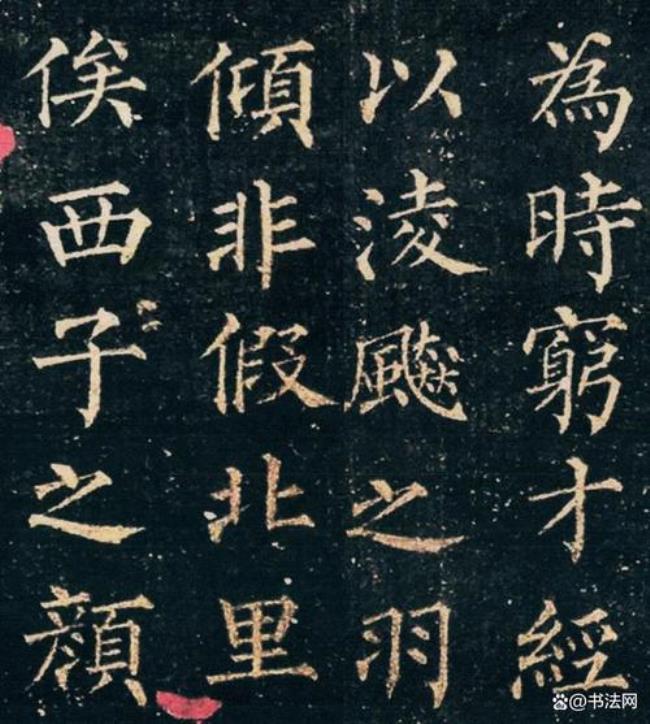 為時窮才經
以淩飈之羽
傾非假北里
俟西子之顏
@书法网